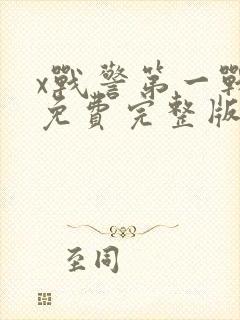 x戰警第一戰
免費完整版
至同